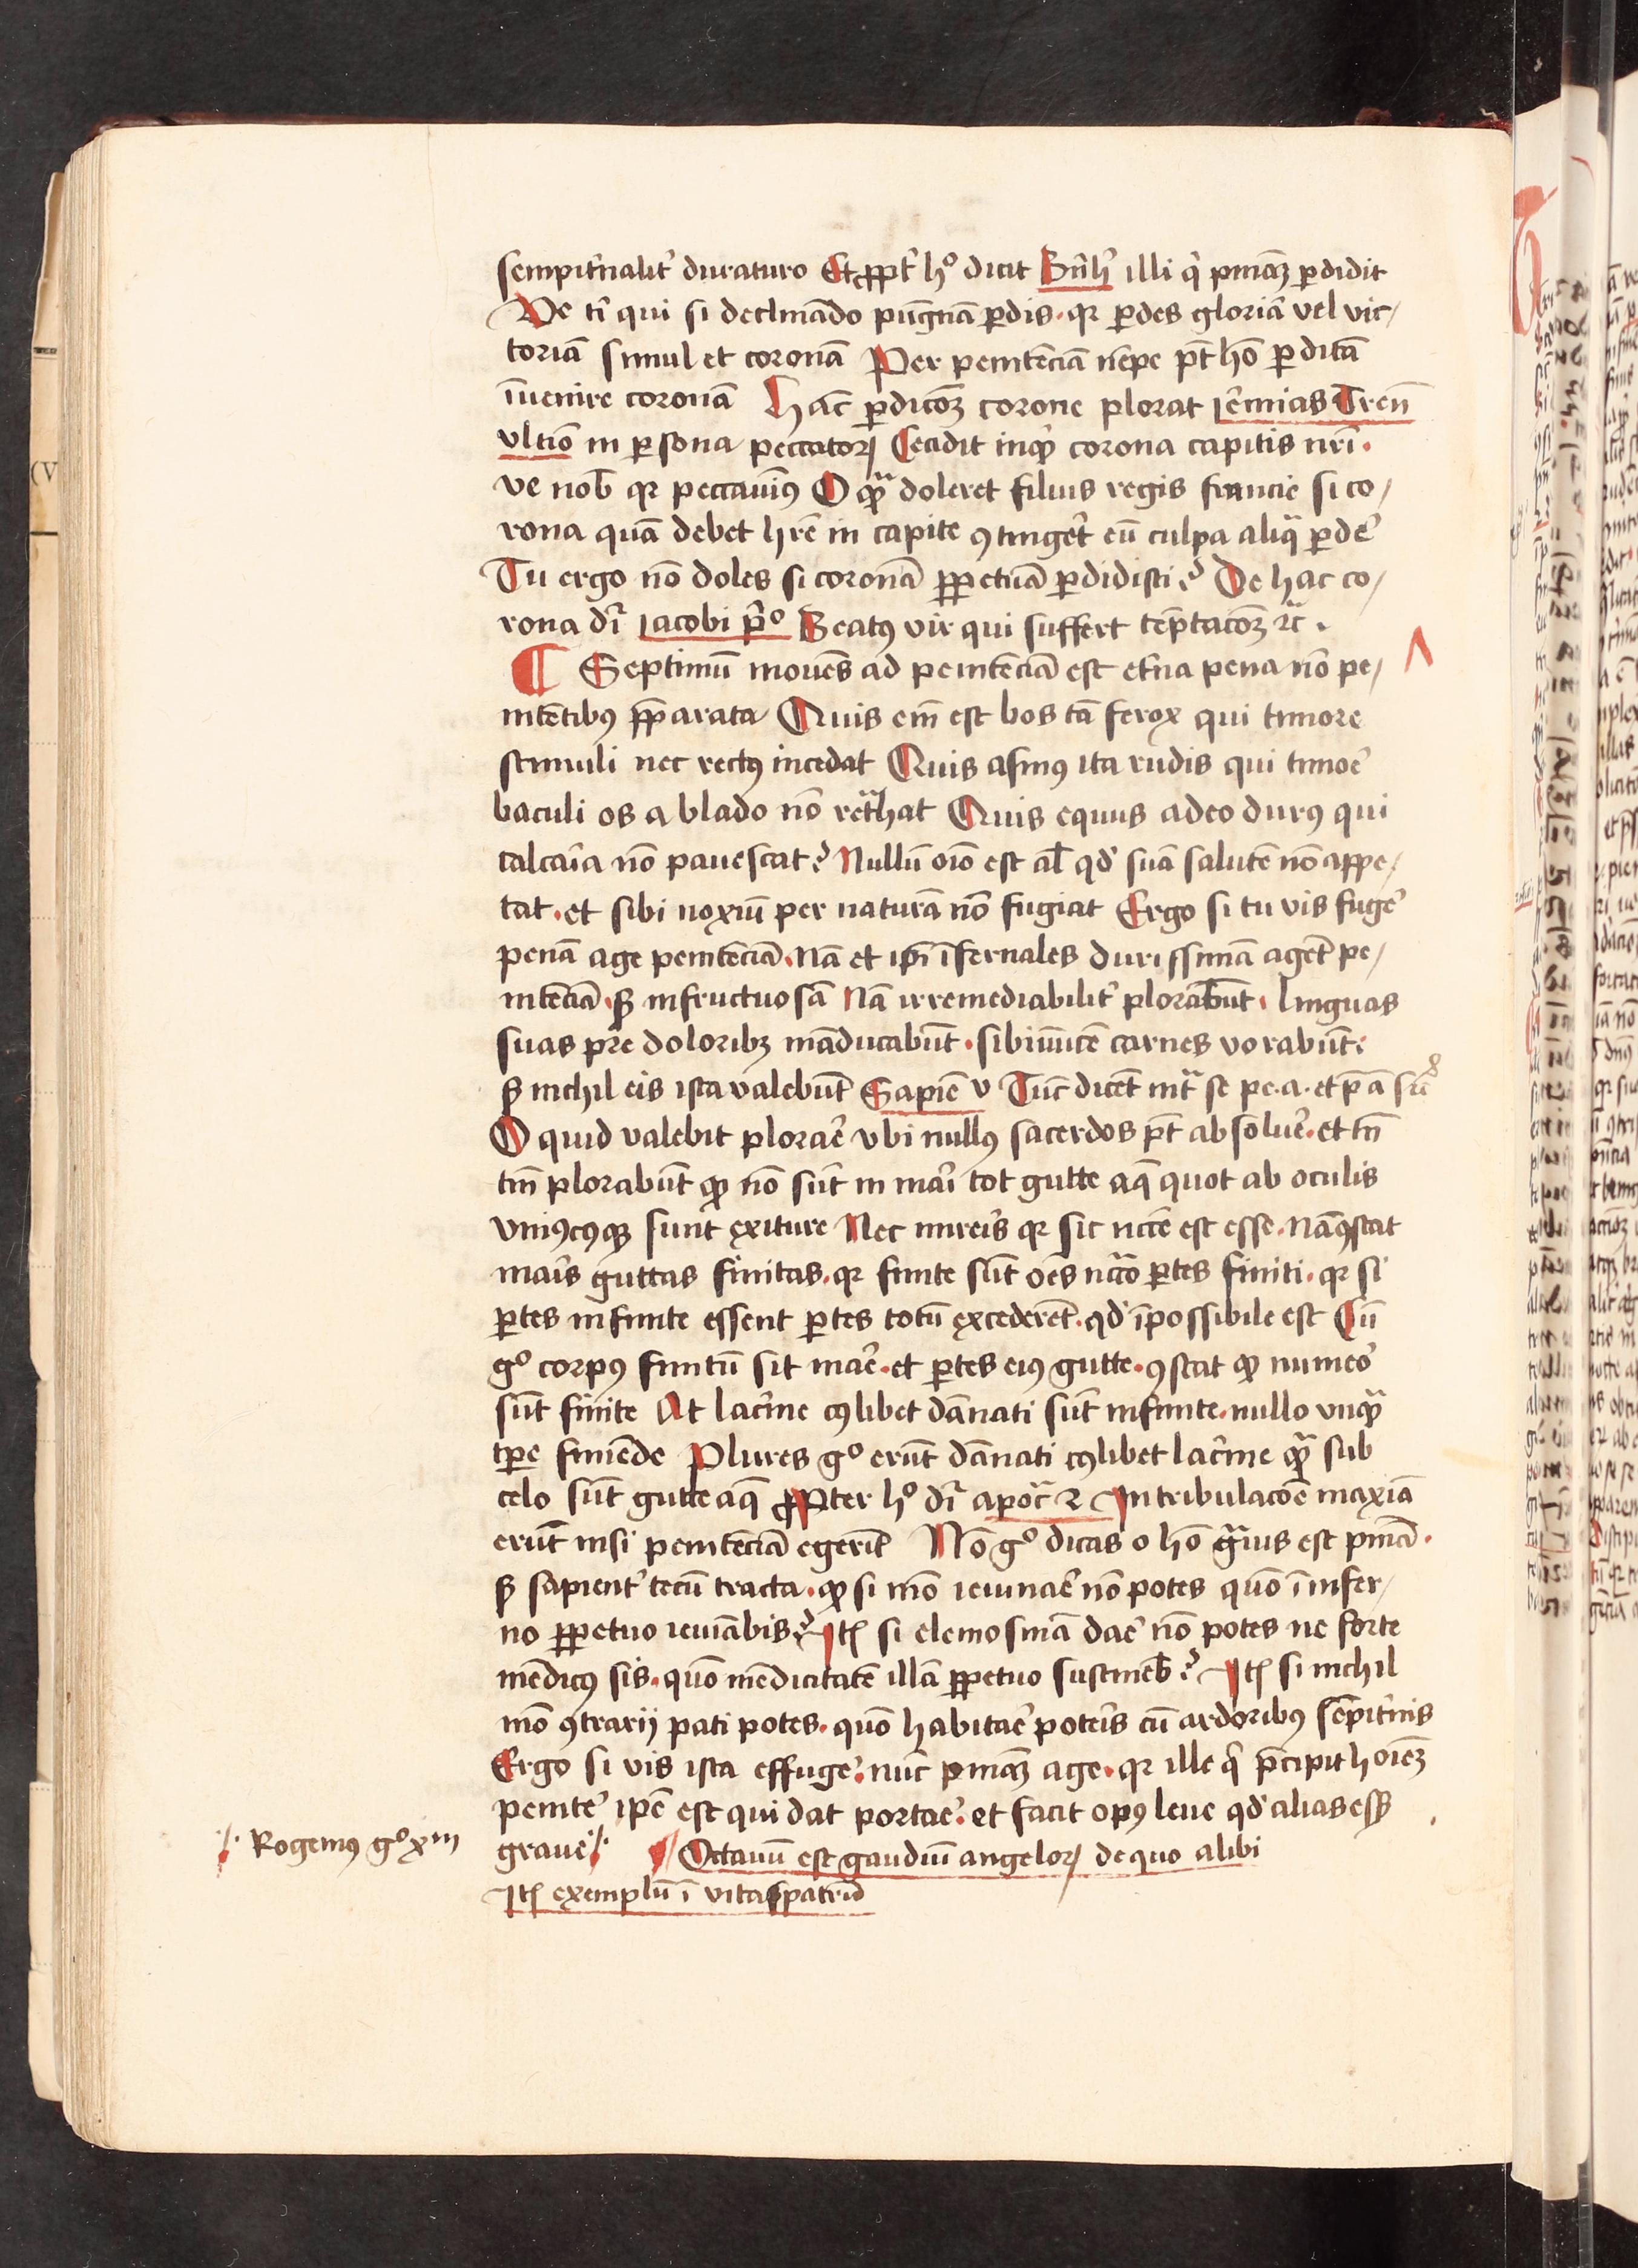 sempit̉nalit̉ duraturo Et ꝓpt̉ hͦ dicit Bn̄hꝰ illi q̇ pn̄iaꝫ ꝑdidit
Ve tī qui si declinādo pugnā ꝑdis · qꝛ ꝑdes gloriā vel vic⸗
toriā simul et coronā Per penitēciā nēpe pt̄ hō ꝑditā
īuenire coronā Hāc ꝑdicōꝫ corone plorat ieremias Tren̄
vltīo in ꝑsona peccatoꝝ Cecidit inqͥ corona capitis nr̄i ·
ve nob̄ qꝛ peccauimꝰ O qᷓ doleret filius regis francie si co⸗
rona quā debet hr̄e in capite ꝯtinger̉t eū culpa aliqᷓ ꝑdẻ
Tu ergo nō doles si coronā ꝑpetuā ꝑdidisti? De hac co⸗
rona dr̄ iacobi pͦ Beatꝰ vir qui suffert tēptacōꝫ ⁊c̄ ·
¶ Septimū mouēs ad penitēciā est et̉na pena nō pe⸗
nitētibꝰ p̄parata Quis em̄ est bos tā ferox qui timore
stimuli nec rectꝰ incedat Quis asinꝰ ita rudis qui timoẻ
baculi os a blado nō ret̉hat Quis equus adeo durꝰ qui
calcaīa nō pauescat? Nullū oīo est al̄ qd̉ suā salutē nō appe⸗
tat · et sibi noxiū per naturā nō fugiat Ergo si tu vis fugẻ
penā age penitēciā · Nā et ip̄i īfernales durissimā agēt pe⸗
nitēciā · sꝫ infructuosā Nā irremediabilit̉ plorabūt · linguas
suas pre doloribꝫ māducabūt · sibiīuicē carnes vorabūt ·
sꝫ nichil eis ista valebūt Sapiē v Tūc dicēt int̉ se pe · a · et p̄ a
O quid valebit ploraẻ vbi nullꝰ sacerdos pt̄ absoluẻ · et tn̄
tm̄ plorabūt qͥ nō sūt in mari tot gutte aq̄ quot ab oculis
vniꝰcꝰqꝫ sunt exiture Nec mireīs qꝛ sic nc̄cē est esse · Nā ꝯstat
mar̄is guttas finitas · qꝛ finite sūt oēs ꝑtes finiti · qꝛ si
ꝑtes infinite essent ꝑtes totū excederēt · qd̉ īpossibile est Cū
gͦ corpꝰ finitū sit marẻ · et ꝑtes eiꝰ gutte · ꝯstat qͥ numeͦ
sūt finite At lacr̉ime cꝰlibet dānati sūt infinite · nullo vnqᷓ
tꝑe finiēde Plures gͦ erūt dānati cꝰlibet lacr̉ime qᷓ sub
celo sūt gutte aq̄ Propter hͦ dr̄ apoc̄ 2 In tribulacōe maxīa
erūt nisi penitēciā egerīt Nō gͦ dicas o hō gᷓuis est pn̄iā ·
sꝫ sapient̉ tecū tracta · qͥ si mō ieiunaẻ nō potes quō ī infer⸗
no ꝑpetuo ieiūabis? Itē si elemosinā daẻ nō potes ne forte
mēdicꝰ sis · quō mēdicitatē illā ꝑpetuo sustineb̄? Itē si nichil
mō ꝯtrarij pati potes · quō habitaẻ poter̉is cū ardoribꝰ sēpit̉nis
Ergo si vis ista effugẻ · nūc pn̄iaꝫ age · qꝛ ille q̇ p̄cipit hoīeꝫ
penitẻ ip̄e est qui dat portaẻ · et facit opꝰ leue qd̉ alias essꝫ
graue /·
·/· Rogemꝰ gͦ xᵐ
Octauū est gaudiū angeloꝝ de quo alibi
Itē exemplū ī vitaspatrū